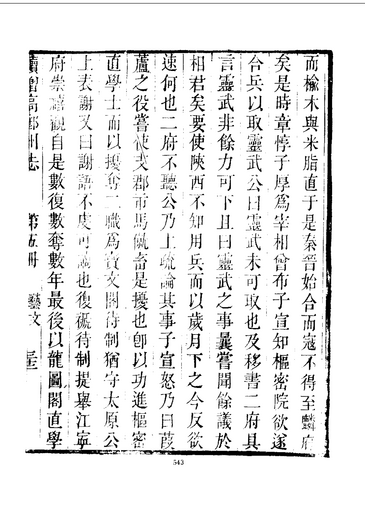 而榆木與米脂直于是秦晉始合而寇不得至麟府
矣是時章惇子厚爲宰相曾布子宣知樞密院欲遂
合兵以取靈武公曰靈武未可取也及移書二府具
言靈武非餘力可下且曰靈武之事曩嘗聞餘議於
相君矣要使陝西不知用兵而以歲月下之今反欲
速何也二府不聽公乃上疏論其事子宣怒乃曰葭
蘆之役嘗使支郡市馬㼌畜是擾也卽以功進樞密
直學士而以擾奪二職爲寶文閣待制猶守太原公
上表謝又曰謝語不虔可 也復 待制提舉江寧
府崇禧觀自是數復數奪數年最後以龍圖閣直學
續增高郵州志
第五册
藝文
三
543